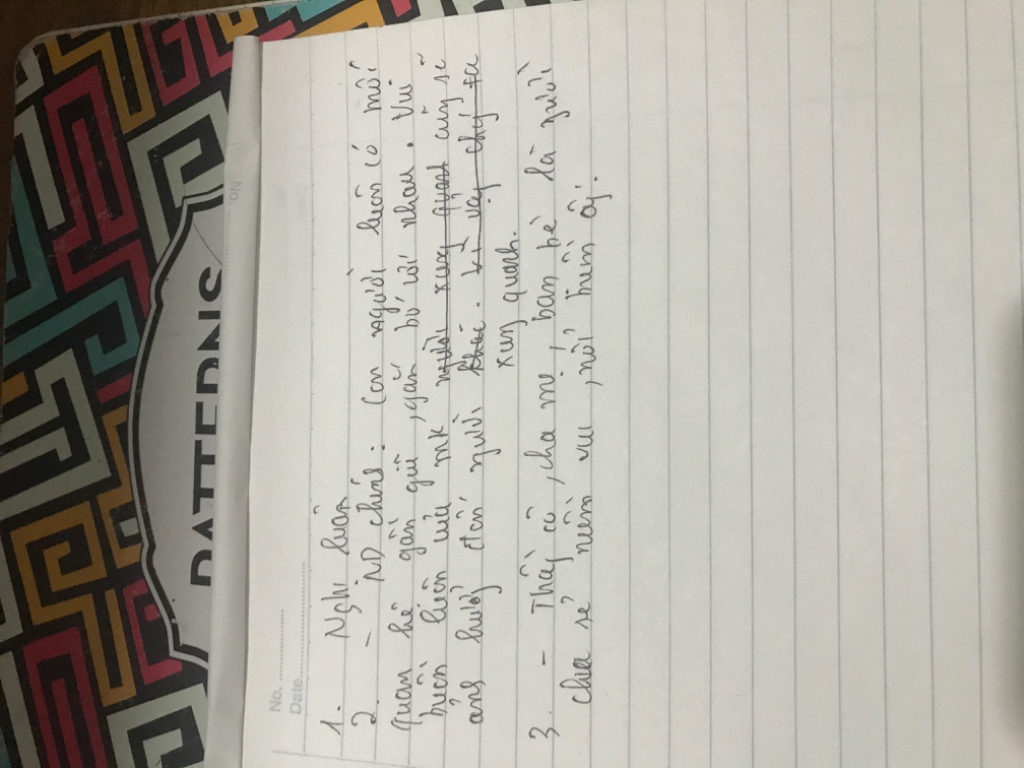 PATTERNS
No.
No. ............
Date ............
1. Nghị luận
2. - ND chính : Con người luôn có mối
quan hệ gần gũi , gắn bó với nhau . Vui
buồn của mk người xung quanh cũng sẽ
ảnh hưởng đến người khác . Vì vậy chúng ta
xung quanh.
3. - Thầy cô , cha mẹ , bạn bè là người
chia sẻ niềm vui , nỗi buồn ấy .